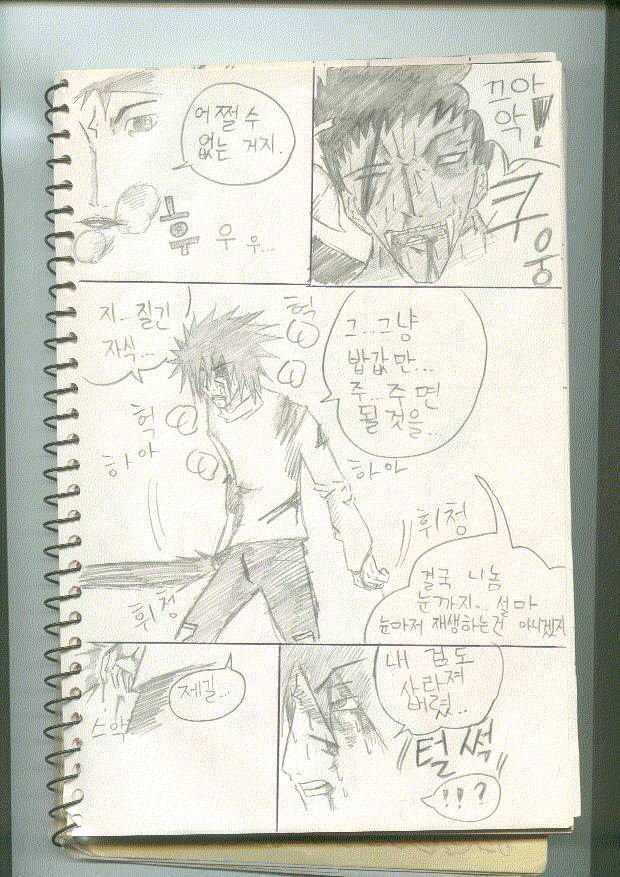 어쩔 수
없는 거지.
훕 우 우...
끄아
악!
쿠
웅
지... 질긴
자식...
헉
그...그냥
밥값만...
주...주면
될 것을...
헉
하아
하아
휘청
결국 니놈
눈까지... 설마
눈마저 재생하는건 아니겠지
휘청
제길...
스악
내 검도
사라져
버렸..
털썩
!!?